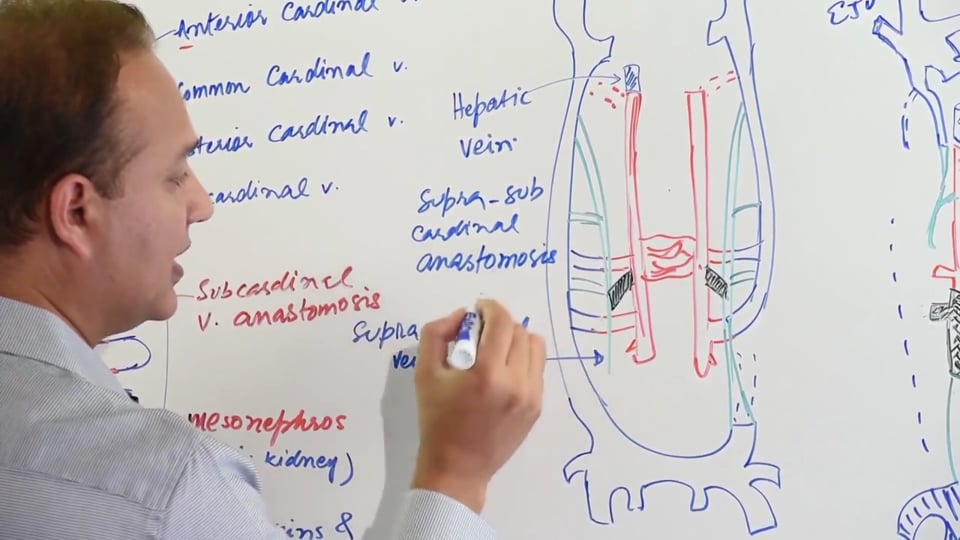 Anterior Cardinal v.
Common Cardinal v.
Cardinal v.
cardinal v.
Subcardinal
v. anastomosis
mesonephros
kidney)
&
Hepatic
vein.
Supra-sub
cardinal
anastomosis
Supra
EJV